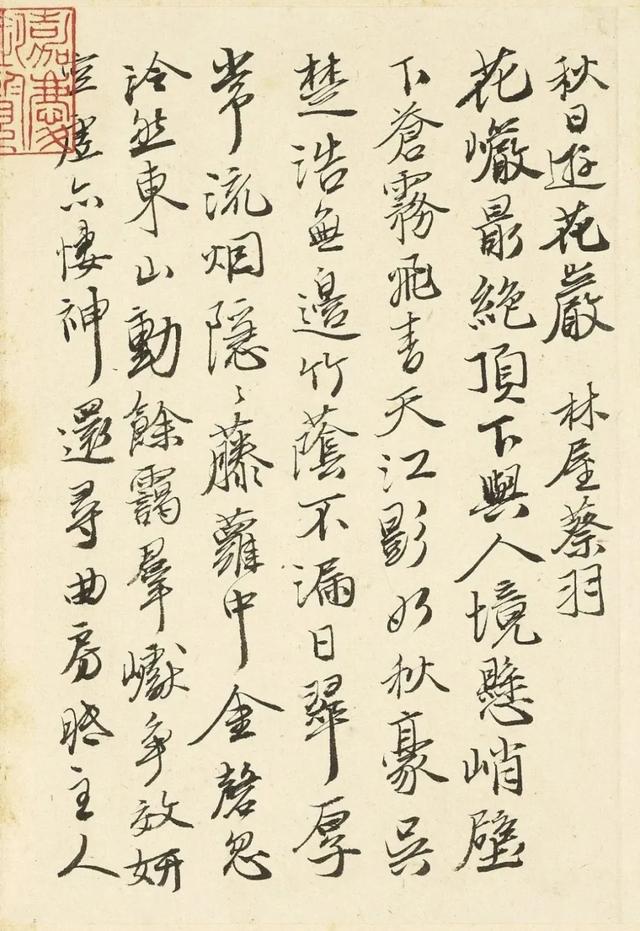 秋日遊花巖 林屋蔡羽
花巖最絕頂下與人境懸峭壁
下蒼霧飛青天江影如秋豪吳
楚浩無邊竹蔭不漏日翠厚
常流烟隱〻藤蘿中金磬忽
泠然東山動餘靄羣巘爭效妍
空亦悽神還尋曲房眠主人
嘉慶